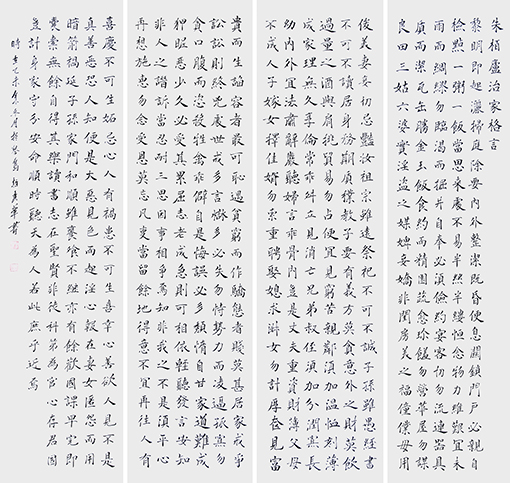 朱柏廬治家格言
黎明即起灑掃庭除要內外整潔既昏便息關鎖門戶必親自
檢點一粥一飯當思來處不易半絲半縷恒念物力維艱宜未
雨而綢繆勿臨渴而掘井自奉必須儉約宴客切勿流連器具
質而潔瓦缶勝金玉飲食約而精園蔬愈珍饈勿營華屋勿謀
良田三姑六婆實淫盜之媒婢美妾嬌非閨房之福僮僕毋用
俊美妻妾切忌艷妝祖宗雖遠祭祀不可不誠子孫雖愚經書
不可不讀居身務期質樸教子要有義方莫貪意外之財莫飲
過量之酒與肩挑貿易勿占便宜見窮苦親鄰須加溫恤刻薄
成家理無久享倫常乖舛立見消亡兄弟叔侄須分多潤寡長
幼內外宜法肅辭嚴聽婦言乖骨肉豈是丈夫重資財薄父母
不成人子嫁女擇佳婿勿索重聘娶媳求淑女勿計厚奩見富
貴而生諂容者最可恥遇貧窮而作驕態者賤莫甚居家戒爭
訟訟則終凶處世戒多言言多必失勿恃勢力而凌逼孤寡勿
貪口腹而恣殺牲禽乖僻自是悔誤必多頹惰自甘家道難成
狎暱惡少久必受其累屈志老成急則可相依輕聽發言安知
非人之譖訴當忍耐三思因事相爭焉知非我之不是須平心
再想施惠勿念受恩莫忘凡事當留餘地得意不宜再往人有
喜慶不可生妒忌心人有禍患不可生喜幸心善欲人見不是
真善惡恐人知便是大惡見色而起淫心報在妻女匿怨而用
暗箭禍延子孫家門和順雖饔飧不繼亦有餘歡國課早完即
囊橐無餘自得其樂讀書志在聖賢非徒科第為官心存君國
豈計身家守分安命順時聽天為人若此庶乎近焉